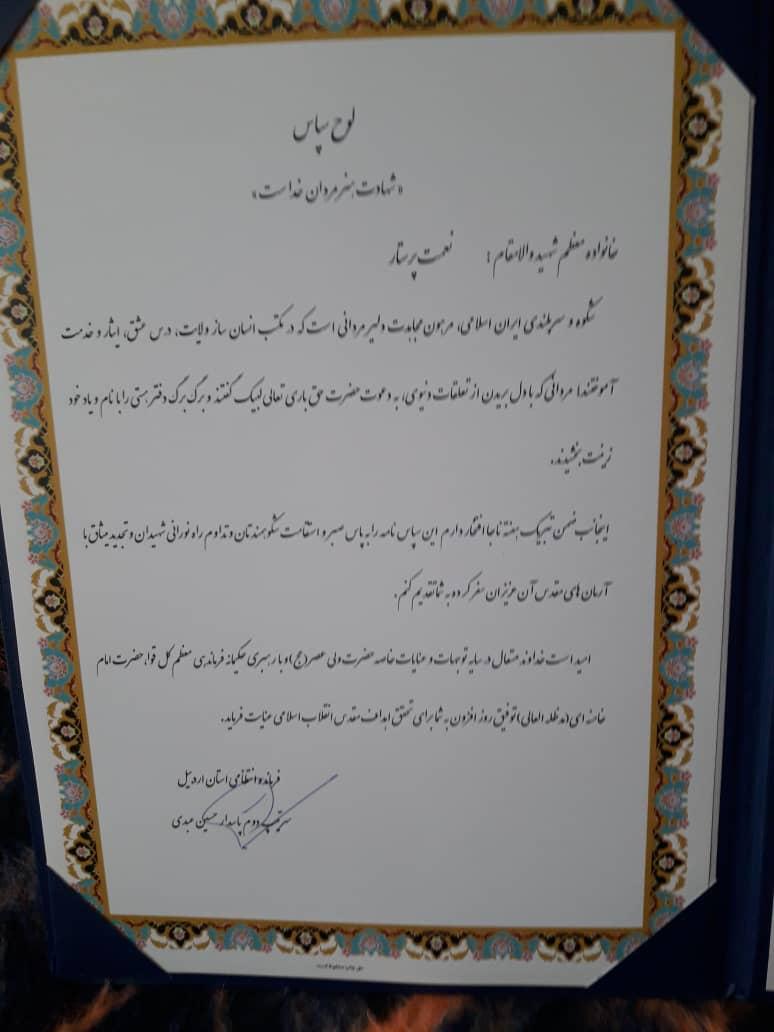 لوح سپاس
«شهادت هنر مردان خداست»
خانواده معظم شهید والامقام : نعمت پرستار
شکوه و سربلندی ایران اسلامی، مرهون مجاهدت دلیر مردانی است که در مکتب انسان ساز ولایت، درس عشق، ایثار و خدمت
آموختند؛ مردانی که با دل بریدن از تعلقات دنیوی، به دعوت حضرت حق باری تعالی لبیک گفتند و برگ برگ دفتر هستی را با نام و یاد خود
زینت بخشیدند.
اینجانب ضمن تبریک هفته ناجا افتخار دارم این سپاس نامه را به پاس صبر و استقامت شکوهمندتان و تداوم راه نورانی شهیدان و تجدید میثاق با
آرمان های مقدس آن عزیزان سفر کرده به شما تقدیم کنم.
امید است خداوند متعال در سایه توجهات و عنایات خاصه حضرت ولی عصر(عج) و با رهبری حکیمانه فرماندهی معظم کل قوا، حضرت امام
خامنه ای(مدظله العالی) توفیق روز افزون به شما برای تحقق اهداف مقدس انقلاب اسلامی عنایت فرماید.
فرمانده انتظامی استان اردبیل
سرتیپ دوم پاسدار حسین عبدی